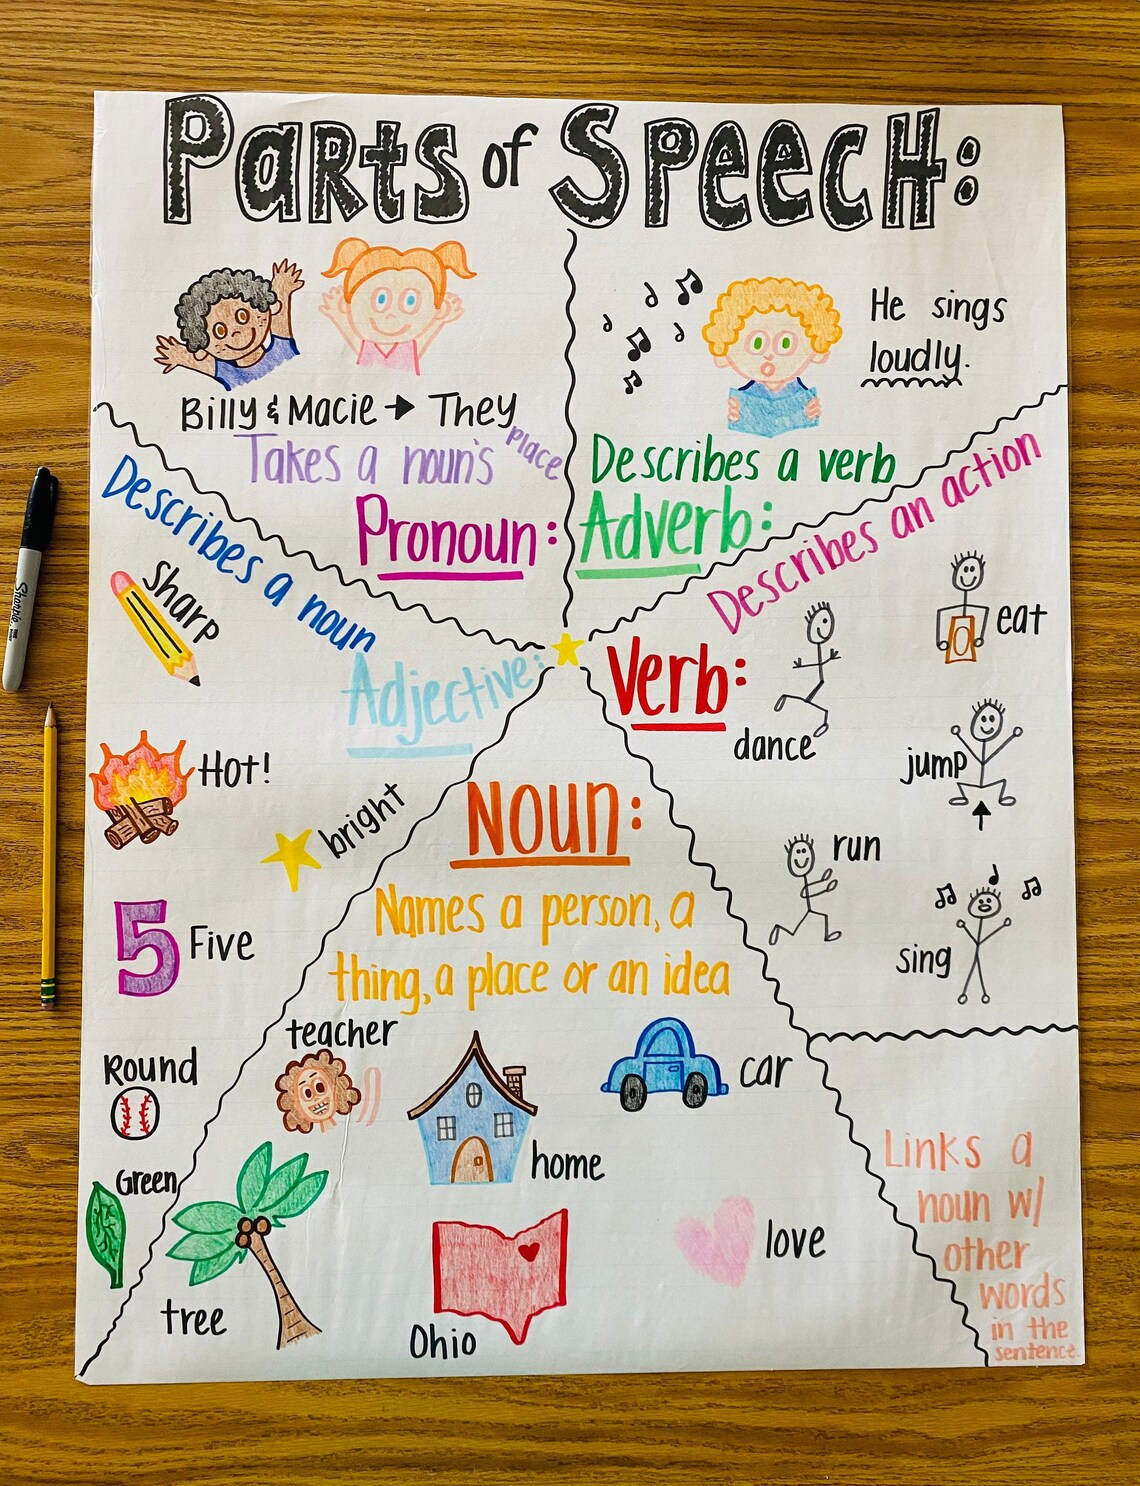 Parts of Speech:
Billy & Macie → They
Takes a noun's place
Pronoun:
He sings
loudly.
Describes a verb
Adverb:
Describes a noun
Adjective:
Sharp
Hot!
bright
5 Five
Round
Green
Describes an action
Verb:
dance
eat
jump
run
sing
Noun:
Names a person, a
thing, a place or an idea
teacher
home
car
tree
Ohio
love
Links a
noun w/
other
words
in the
sentence.
Sharpie